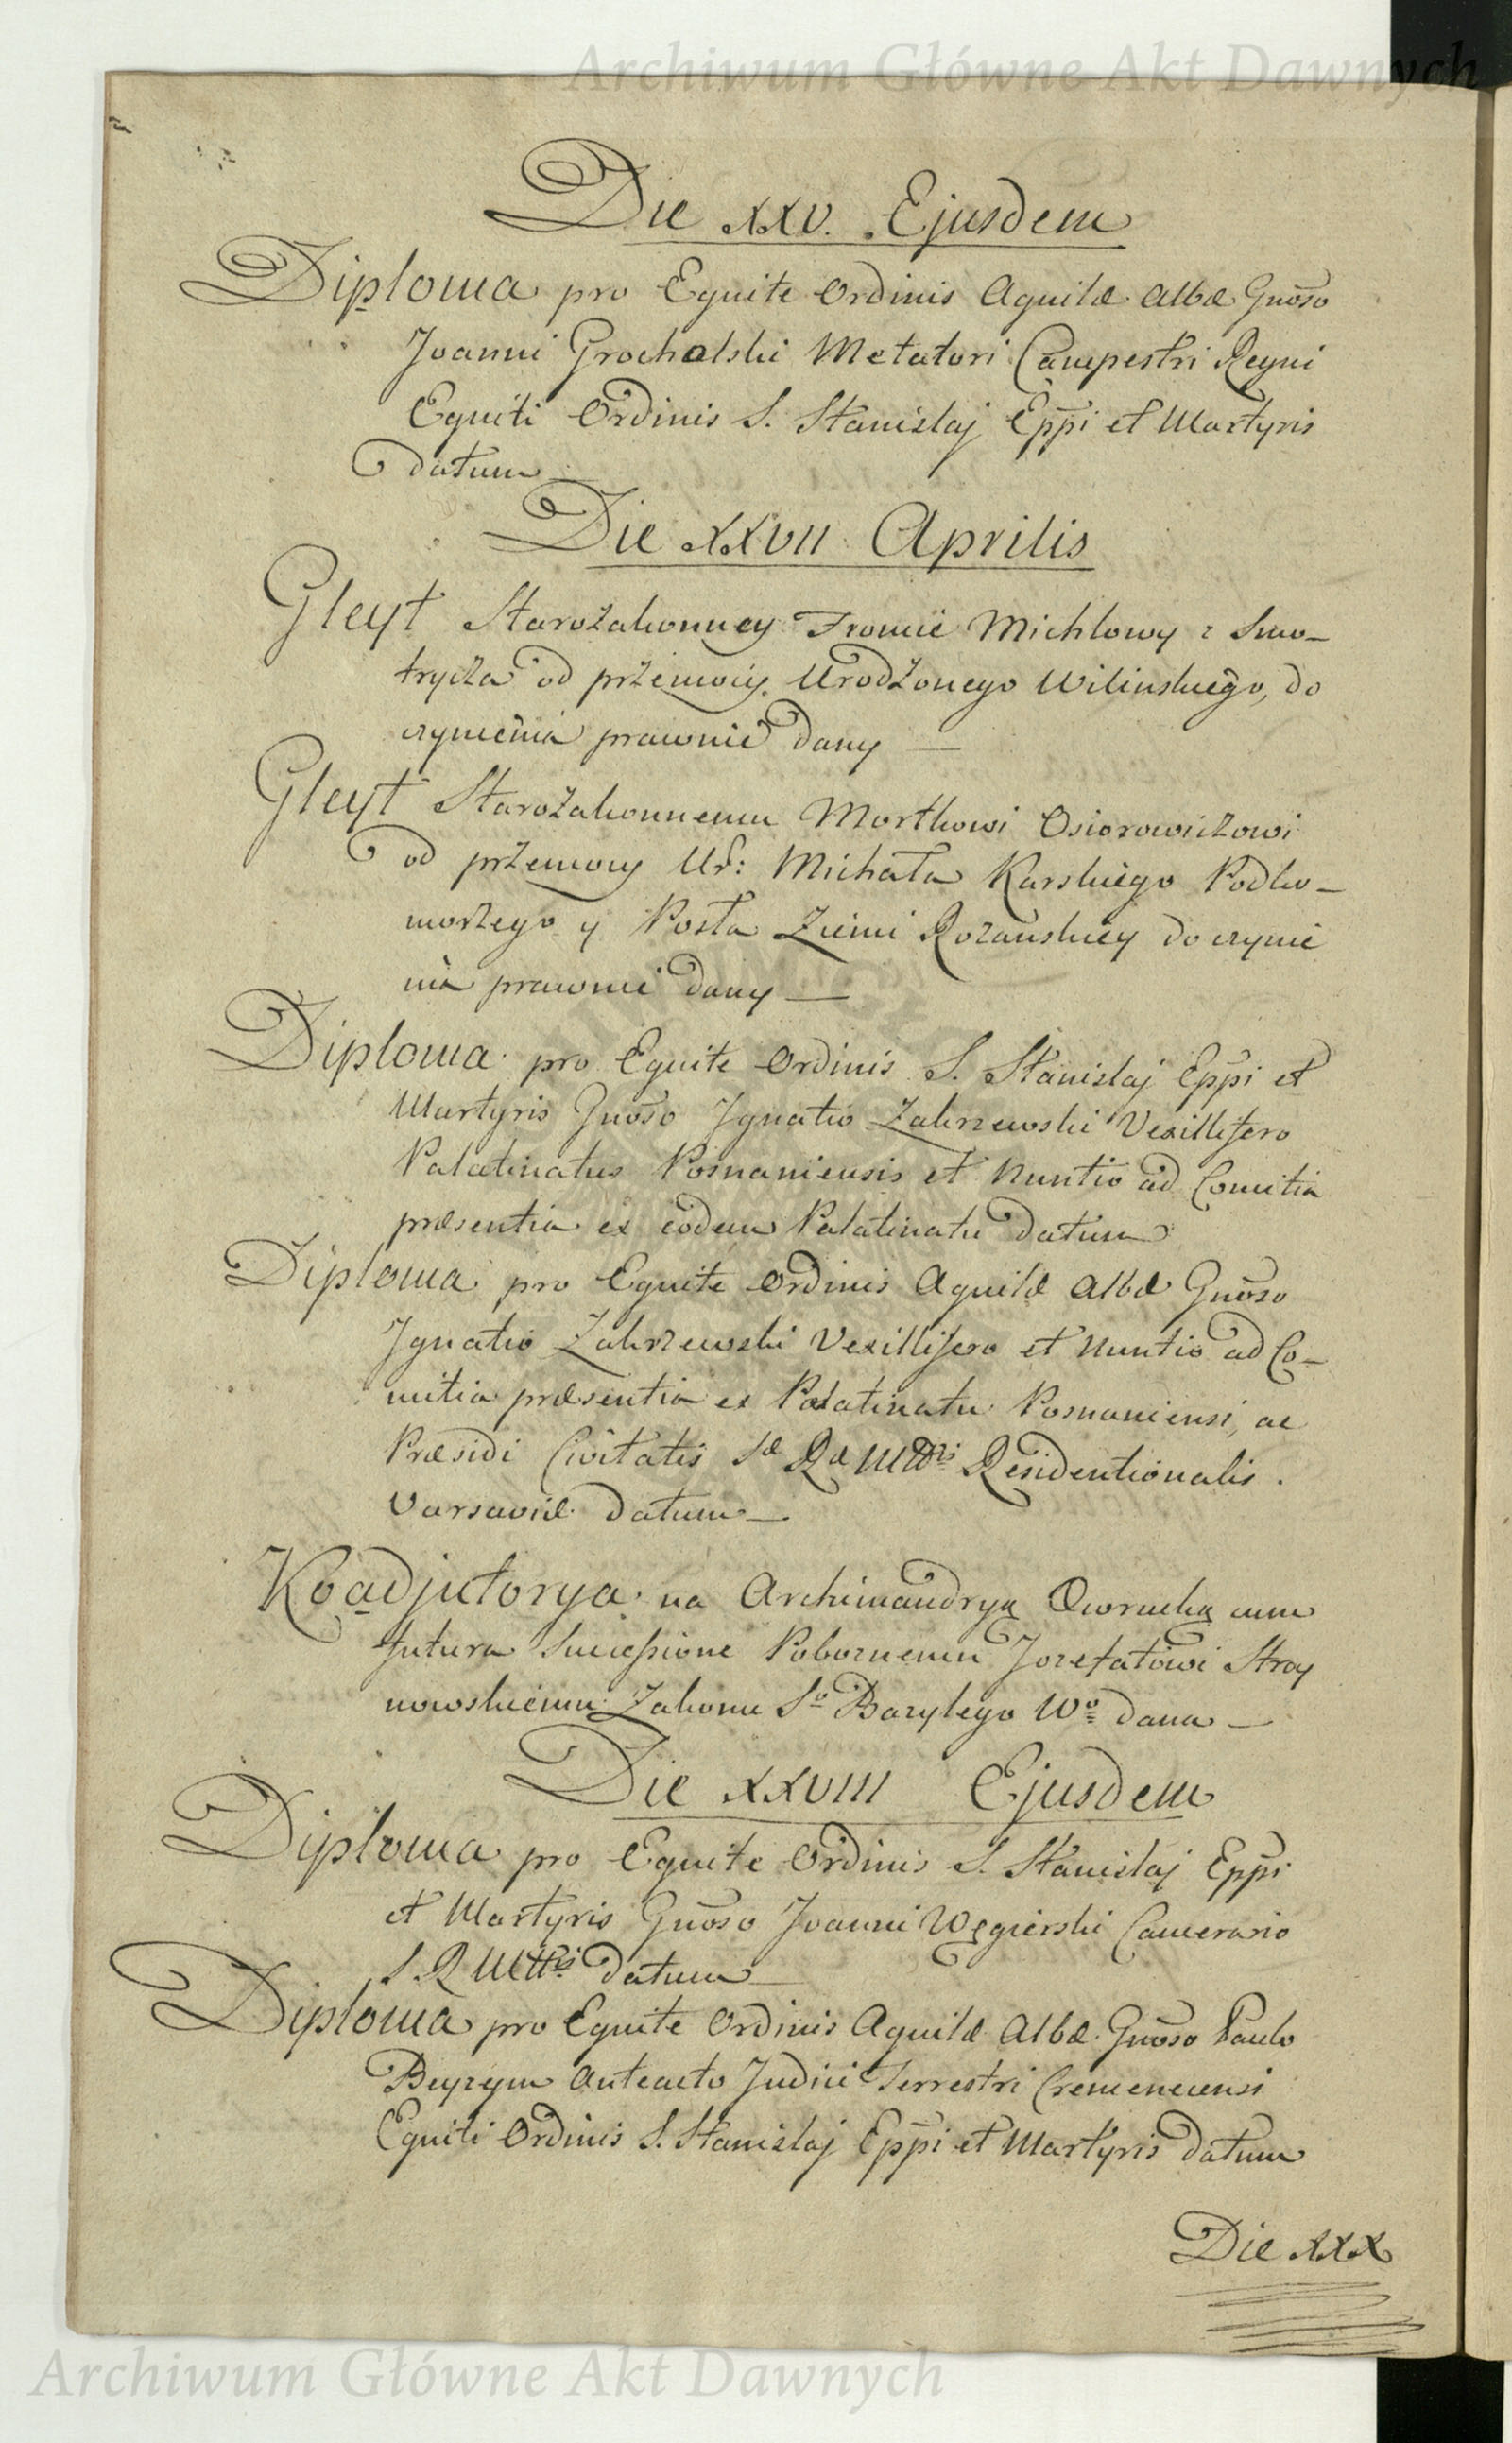 Archiwum Główne Akt Dawnych
Die XXV. Ejusdem
Diploma pro Equite Ordinis Aquilæ Albæ Gnoso
Joanni Grocholski Metatori Campestri Regni
Equiti Ordinis S. Stanislaj Eppi et Martyris
datum
Die XXVII Aprilis
Gleyt Starozakonney Fromie Michlowy z Smo-
trycza od przemocy Urodzonego Wilinskiego, do
czynienia prawnie dany —
Gleyt Starozakonnemu Mortkowi Osiorowiczowi
od przemocy Ur: Michała Karskiego Podko-
morzego y Posła Ziemi Rozanskiey do czynie
nia prawnie dany —
Diploma pro Equite Ordinis S. Stanislaj Eppi et
Martyris Gnoso Ignatio Zakrzewski Vexillifero
Palatinatus Posnaniensis et Nuntio ad Comitia
præsentia ex eodem Palatinatu datum
Diploma pro Equite Ordinis Aquilæ Albæ Gnoso
Ignatio Zakrzewski Vexillifero et Nuntio ad Co-
mitia præsentia ex Palatinatu Posnaniensi, ac
Præsidi Civitatis Sæ Ræ Mttis Residentionalis
Varsaviæ datum —
Koadjutorya na Archimandryą Owrucką cum
futura Successione Pobożnemu Jozefatowi Stroy
nowskiemu Zakonu Sgo Bazylego Wo dana —
Die XXVIII Ejusdem
Diploma pro Equite Ordinis S. Stanislaj Eppi
et Martyris Gnoso Joanni Węgierski Camerario
S R Mttis datum —
Diploma pro Equite Ordinis Aquilæ Albæ Gnoso Paulo
Beyzym Anteacto Judici Terrestri Cremenecensi
Equiti Ordinis S. Stanislaj Eppi et Martyris datum
Die XXX
Archiwum Główne Akt Dawnych